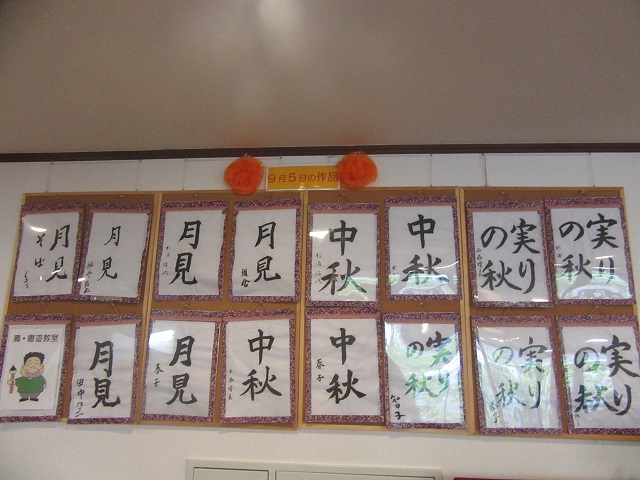 9月5日の作品
月見
そば
月見
月見
月見
中秋
中秋
実りの秋
実りの秋
壽・書道教室
月見
田中
月見
春子
中秋
中秋
春子
実りの秋
実りの秋
実りの秋